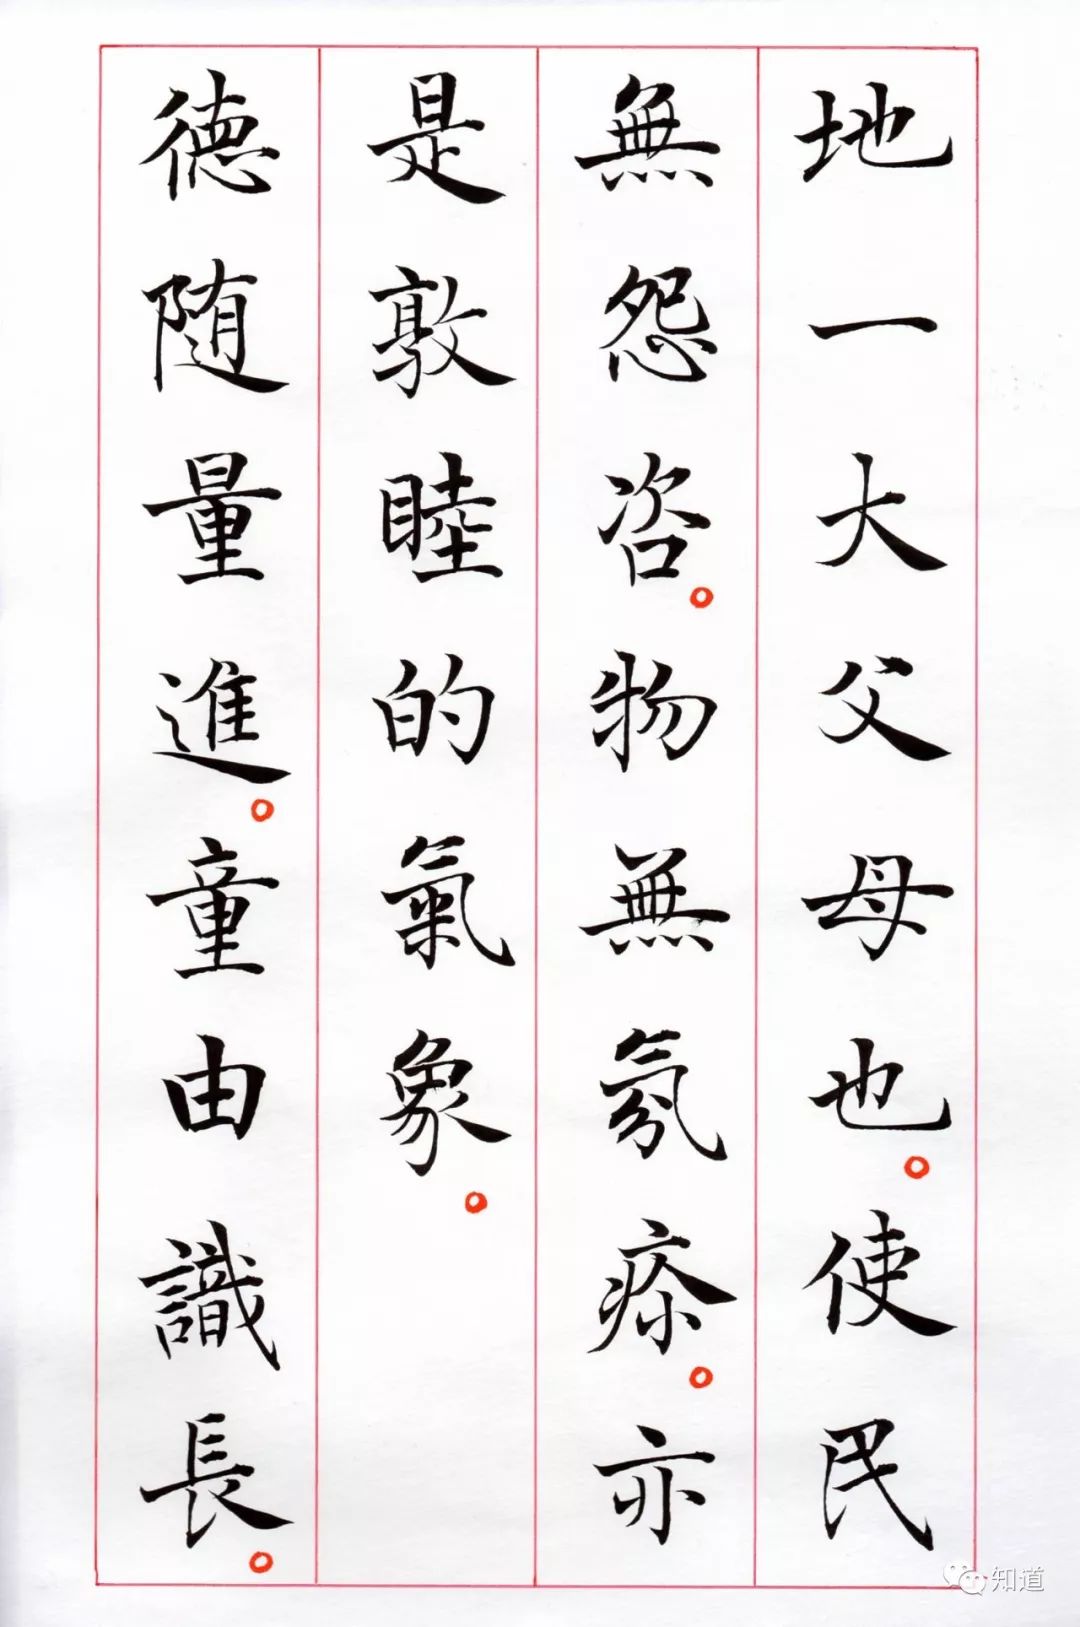 地一大父母也。使民
無怨咨。物無氛疹。亦
是敦睦的氣象。
德随量進。量由識長。
知道